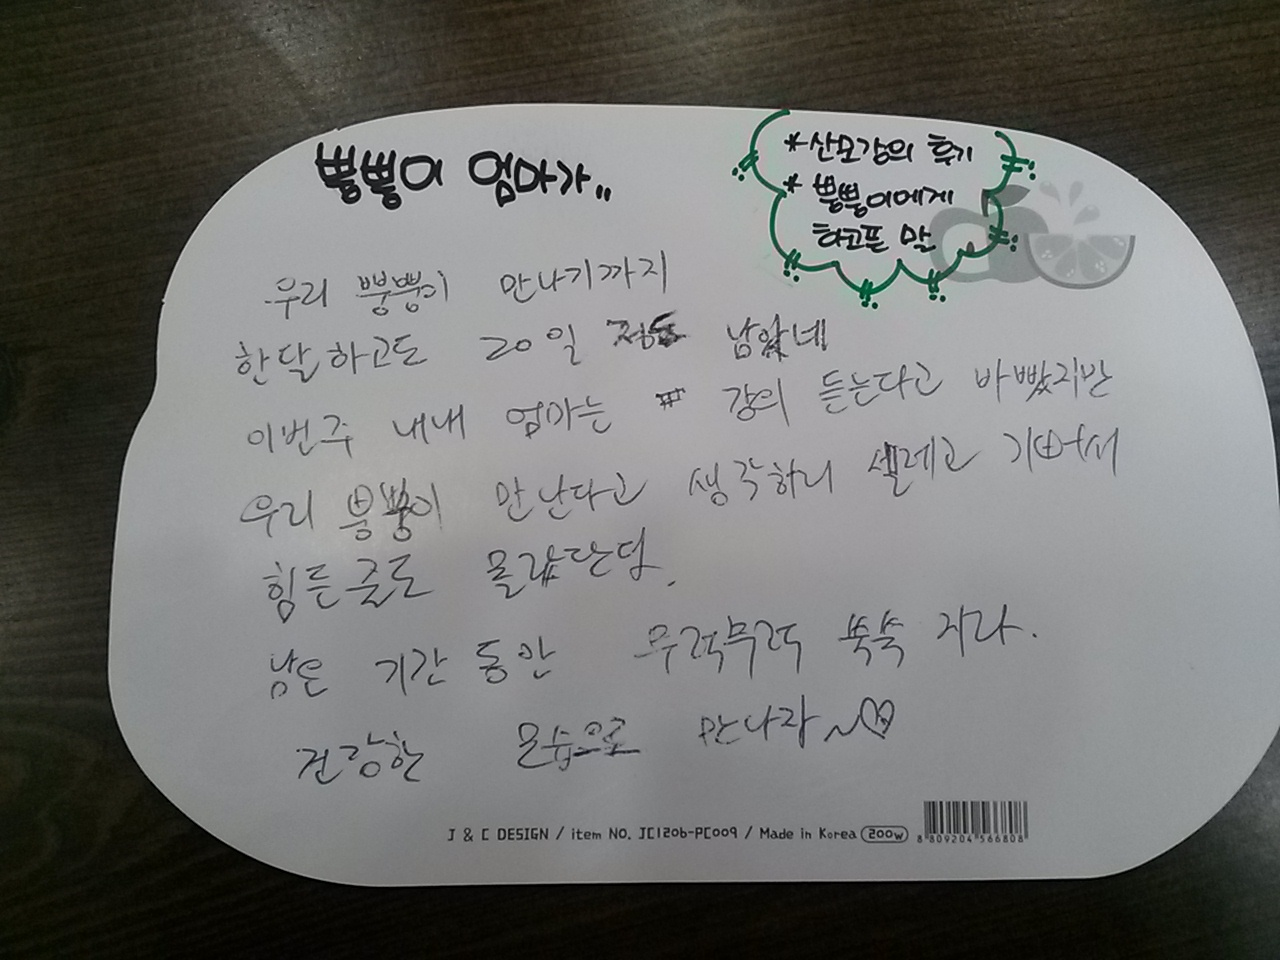 뿡뿡이 엄마가..
*산모강의 후기
* 뿡뿡이에게
하고픈 말
우리 뿡뿡이 만나기까지
한달하고도 20일 정도 남았네
이번주 내내 엄마는 강의 듣는다고 바빴지만
우리 뿡뿡이 만난다고 생각하니 셀레고 기뻐서
힘든줄도 몰랐단다.
남은 기간 동안 무럭무럭 쑥쑥 자라.
건강한 모습으로 만나자~♡
J & C DESIGN / item NO. JC1206-PC009 / Made in Korea 200w
8 809204 566808